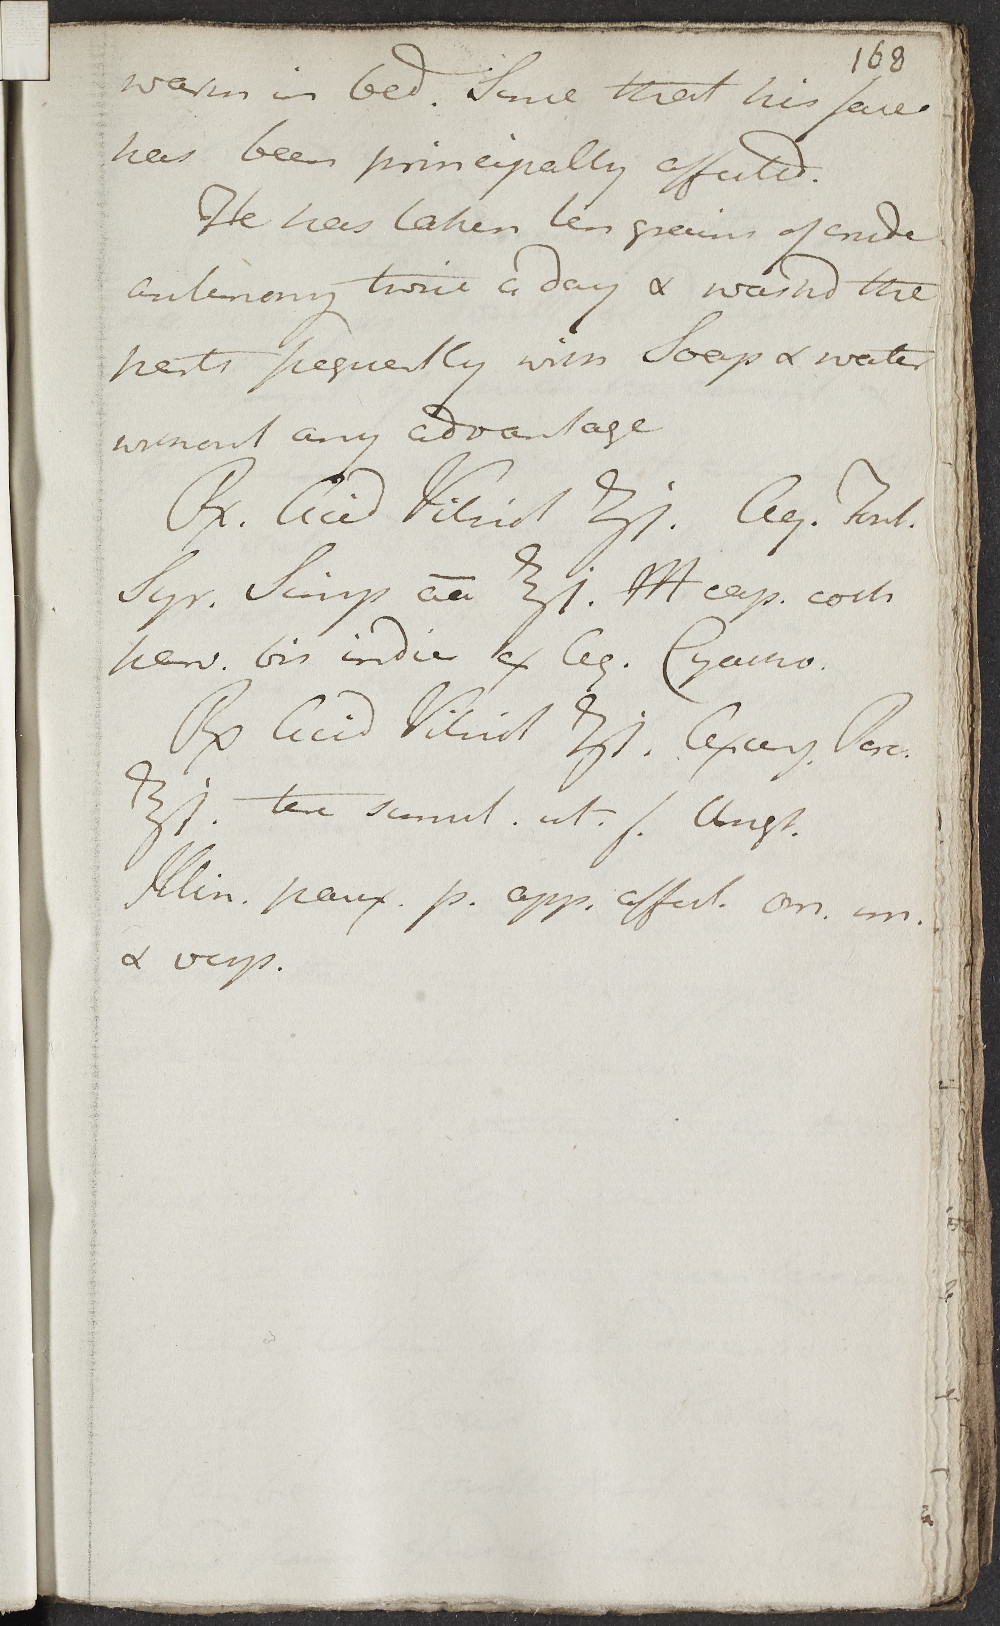 168
warm in bed. Since that his face
has been principally affected.
He has taken ten grains of crude
antimony twice a day & washd the
parts frequently with Soap & water
without any advantage
Rx. Acid Vitriol ʒj. Aq. Font.
Syr. Simp āā ℥j. M cap. coch
parv. bis indie ex Aq. Cyatho.
Rx Acid Vitriol ʒj. Axung. Porc.
℥j. tere simul. ut. f. Ungt.
Illin. paux. p. app. affect. om. m.
& vesp.